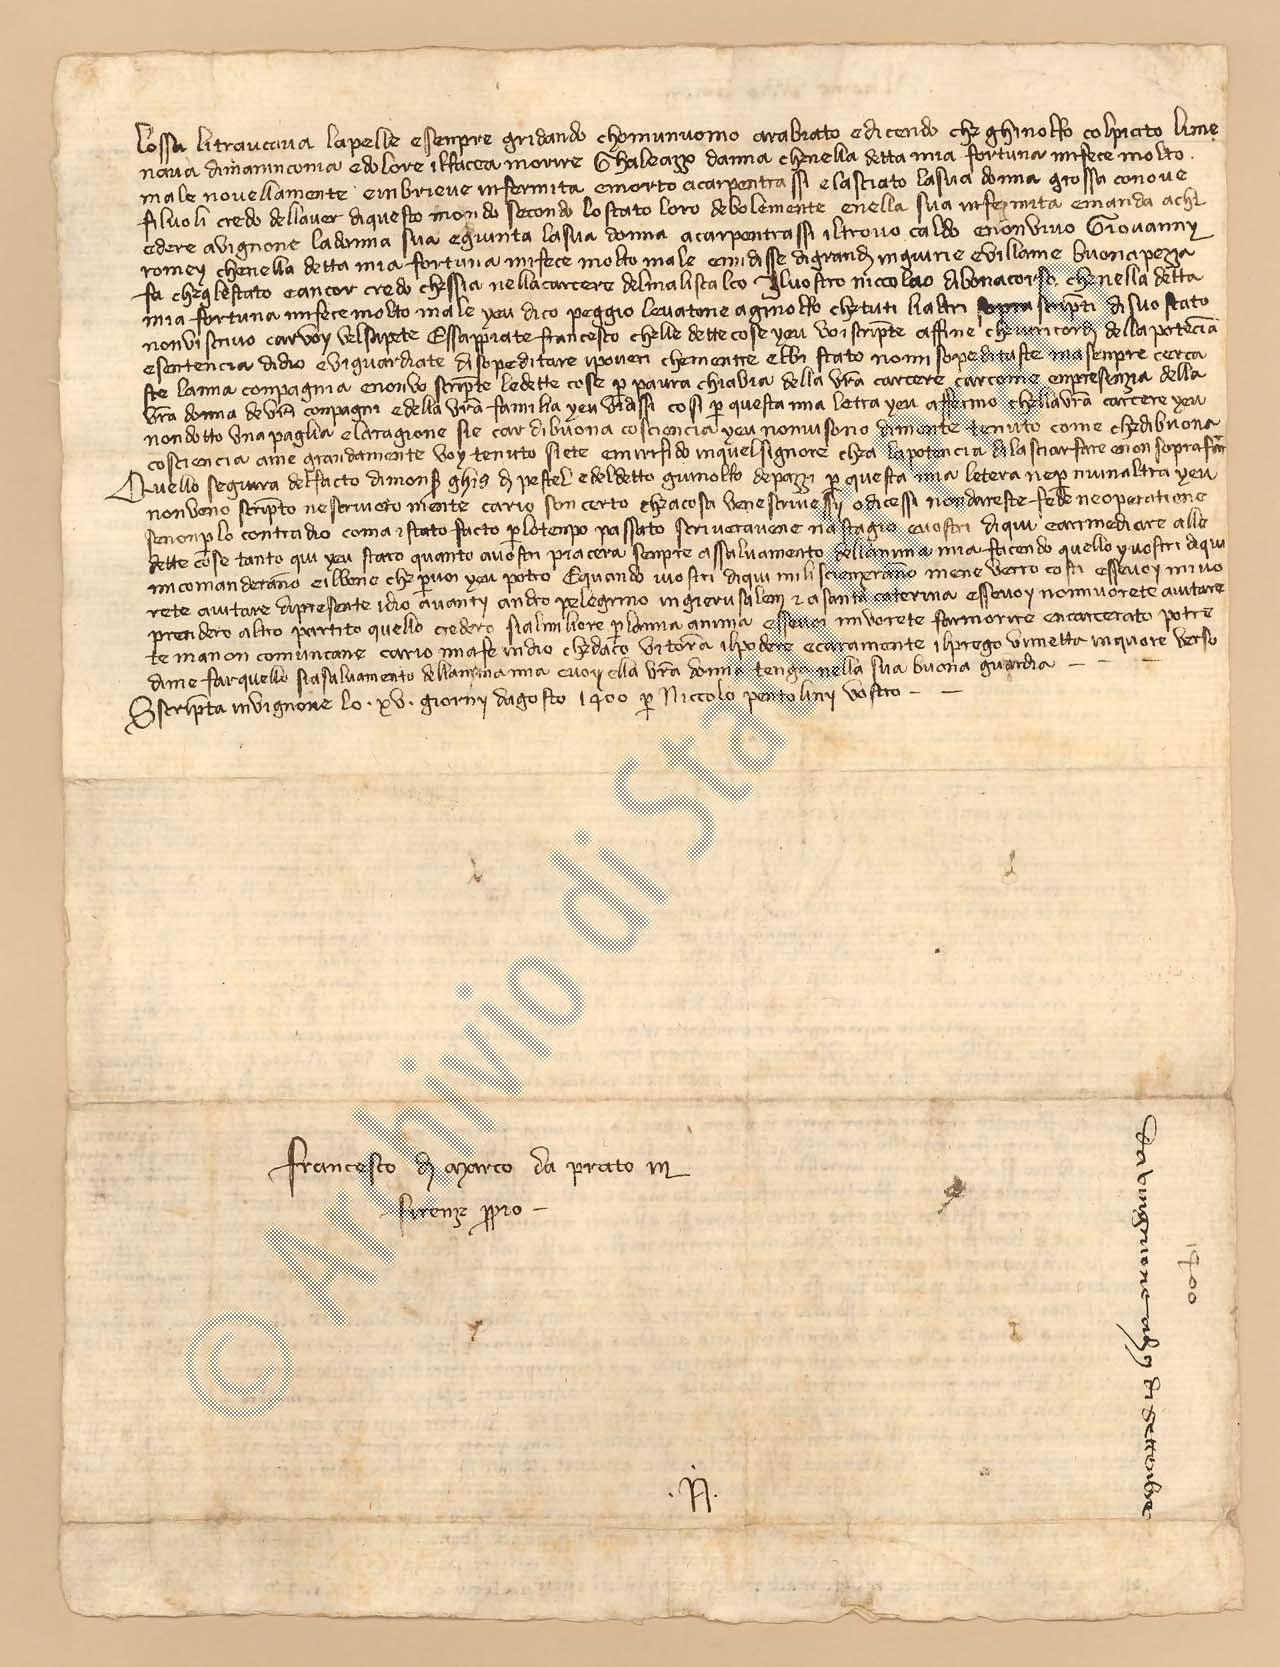 lossa li traucava la pelle e senpre gridando chom un vomo arabiato e dicendo che ghinolfo colpicito li me
nava di maninconia e dolore il facea morire Ghaleazzo danna che nella detta mia fortuna mi fece molto
male novellamente e in brieve infermita e morto a carpentrassi e lasciato la sua donna grossa con ove
filuoli credo dellaver di questo mondo secondo lo stato loro debolemente e nella sua infermita e manda a chi
edere a vignone la donna sua e giunta la sua donna a carpentrassi il trovo caldo e non vivo Giovanny
romey che nella detta mia fortuna mi fece molto male e mi disse di grandi inguirie e villanie buona pezza
fa che glestato e ancor credo che ssia nella carcere del malistalco Il vostro niccolao di bonacorso che nella detta
mia fortuna mi fece molto male yeu dico peggio levatone a ginolfo che tuti li altri sopra scripti di suo stato
non vi scrivo car voy vel sapete E ssappiate francesco chelle dette cose yeu voi scripte affine che vi ricordi della potencia
e sentencia di dio e vi guardiate di sopeditare i poveri che mentre ebbi stato non mi sopeditaste ma senpre cerca
ste la mia conpagnia e non vo scripte le dette cose per paura chi abia della vra carcere car come in presenzia della
vra donna de vri conpagni e della vra familia yeu vi dissi cosi per questa mia letra yeu affermo che lla vra carcere yeu
non dotto una paglia e la ragione sie car di buona cosciencia yeu non vi sono di niente tenuto come che di buona
cosciencia a me grandamente voy tenuto siete e mi rifido in quel signore cha la potencia di lasciar fare e non soprafar
Quello seguira del facto di mons ghis di pestel e del detto guinolfo de pazzi per questa mia letera ne per nuin altra yeu
non veno scripto ne scrivero niente cario son certo cha cosa ve ne scrivessy o dicessi non dareste fede ne operatione
se non per lo contradio coma istato facto per lo tempo passato scriveravene nastagio e vostri di qui e a rimediare alle
dette cose tanto qui yeu staro quanto a vostri piacera senpre a ssalvamento dellanima mia facendo quello y vostri di qui
mi comanderano e il bene che per voi yeu potro E quando i vostri di qui mi licienzierano me ne verro costi e sse voy mi vo
rete aiutare di presente idio avanti andro pelegrino in gierusalem e a santa caterina e sse voy non mi vorete aiutare
prendero altro partito quello credero sia il miliore per lanima mia e sse voi mi vorete far morire encarcerato potre
te ma non comuncane cario ma fe in dio che daco vi tora il podere e caramente il prego vi metta in quore verso
di me far quello sia salvamento dellanima mia e voi e lla vra donna tenga nella sua buona guardia —
Sscripta in vignone lo .xv. giorni dagosto 1400 per Niccolo pentolini vostro —
francesco di marco da prato in
firenze propio —
.N.
Da vingnone adi 9 di settenbre
1400